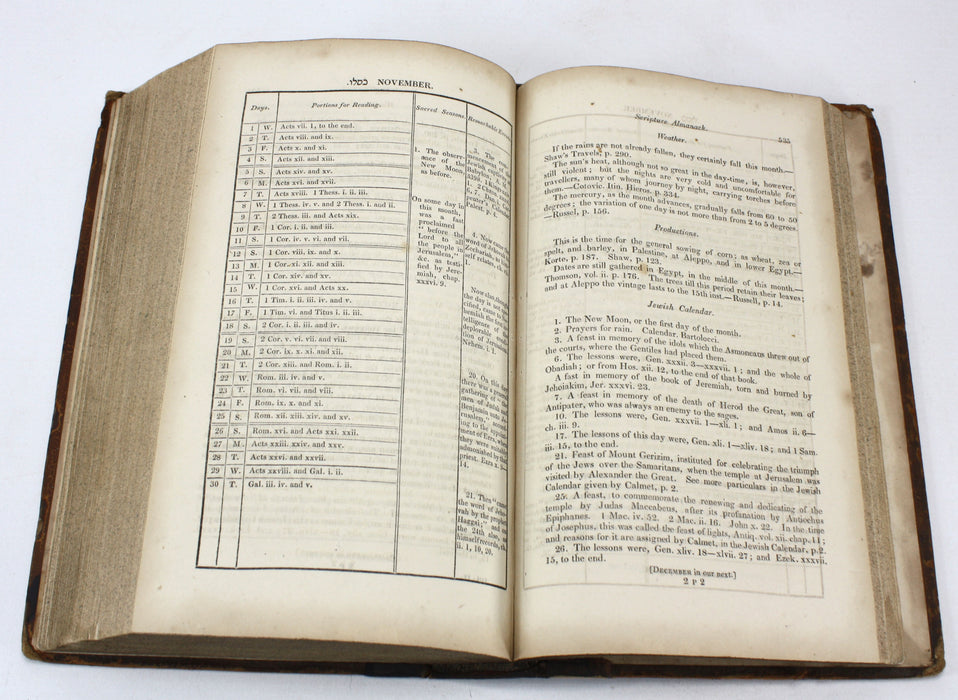 כסלו. NOVEMBER.
Days. Portions for Reading. Sacred Seasons. Remarkable Events.
1 W. Acts vii. 1, to the end.
2 T. Acts viii. and ix.
3 F. Acts x. and xi.
4 S. Acts xii. and xiii.
5 S. Acts xiv. and xv.
6 M. Acts xvi. and xvii.
7 T. Acts xviii. 1 Thess. i. ii. iii.
8 W. 1 Thess. iv. v. and 2 Thess. i. and ii.
9 T. 2 Thess. iii. and Acts xix.
10 F. 1 Cor. i. ii. and iii.
11 S. 1 Cor. iv. v. vi. and vii.
12 S. 1 Cor. viii. ix. and x.
13 M. 1 Cor. xi. xii. and xiii.
14 T. 1 Cor. xiv. and xv.
15 W. 1 Cor. xvi. and Acts xx.
16 T. 1 Tim. i. ii. iii. iv. and v.
17 F. 1 Tim. vi. and Titus i. ii. iii.
18 S. 2 Cor. i. ii. iii. and iv.
19 S. 2 Cor. v. vi. vii. and viii.
20 M. 2 Cor. ix. x. xi. and xii.
21 T. 2 Cor. xiii. and Rom. i. ii.
22 W. Rom. iii. iv. and v.
23 T. Rom. vi. vii. and viii.
24 F. Rom. ix. x. and xi.
25 S. Rom. xii. xiii. xiv. and xv.
26 S. Rom. xvi. and Acts xxi. xxii.
27 M. Acts xxiii. xxiv. and xxv.
28 T. Acts xxvi. and xxvii.
29 W. Acts xxviii. and Gal. i. ii.
30 T. Gal. iii. iv. and v.
1. The observ-
ance of the
New Moon,
as before.
On some day in
this month,
was a fast
proclaimed
" before the
Lord to all
the people in
Jerusalem,"
&c. as testi-
fied by Jere-
miah, chap.
xxxvi. 9.
3. The
Jewish
4. Now came the
word of Jehovah
Zechariah
self relates, ch.
Now also,
the day is not
cified, came to
hemiah the
telligence of
deplorable
tion of
Nehem. i. 1.
20. On this day
there was a
gathering of
men of Judah and
Benjamin unto
rusalem,"
ing to the
ment of Ezra,
they were
admonished by
priest. Ezra x.
14.
21. Then "
the word of Jeho-
vah by the prophet
Haggai;" and on
the 24th also, as
himself records, ch.
ii. 1, 10, 20.
Scripture Almanack. 535
Weather.
If the rains are not already fallen, they certainly fall this month.—
Shaw's Travels, p. 290.
The sun's heat, although not so great in the day-time, is, however,
still violent; but the nights are very cold and uncomfortable for
travellers, many of whom journey by night, carrying torches before
them.—Cotovic. Itin. Hieros. p. 334.
The mercury, as the month advances, gradually falls from 60 to 50
degrees; the variation of one day is not more than from 2 to 5 degrees.
—Russel, p. 156.
Productions.
This is the time for the general sowing of corn; as wheat, zea or
spelt, and barley, in Palestine, at Aleppo, and in lower Egypt.—
Korte, p. 187. Shaw, p. 123.
Dates are still gathered in Egypt, in the middle of this month.—
Thomson, vol. ii. p. 176. The trees till this period retain their leaves;
and at Aleppo the vintage lasts to the 15th inst.—Russell, p. 14.
Jewish Calendar.
1. The New Moon, or the first day of the month.
2. Prayers for rain. Calendar. Bartolocci.
3. A feast in memory of the idols which the Asmoneans threw out of
the courts, where the Gentiles had placed them.
6. The lessons were, Gen. xxxii. 3—xxxvii. 1; and the whole of
Obadiah; or from Hos. xii. 12, to the end of that book.
A fast in memory of the book of Jeremiah, torn and burned by
Jehoiakim, Jer. xxxvi. 23.
7. A feast in memory of the death of Herod the Great, son of
Antipater, who was always an enemy to the sages.
10. The lessons were, Gen. xxxvii. 1—xli. 1; and Amos ii. 6—
ch. iii. 9.
17. The lessons of this day were, Gen. xli. 1—xliv. 18; and 1 Sam.
iii. 15, to the end.
21. Feast of Mount Gerizim, instituted for celebrating the triumph
of the Jews over the Samaritans, when the temple at Jerusalem was
visited by Alexander the Great. See more particulars in the Jewish
Calendar given by Calmet, p. 2.
25. A feast, to commemorate the renewing and dedicating of the
temple by Judas Maccabeus, after its profanation by Antiochus
Epiphanes. 1 Mac. iv. 52. 2 Mac. ii. 16. John x. 22. In the time
of Josephus, this was called the feast of lights, Antiq. vol. xii. chap. 11;
and reasons for it are assigned by Calmet, in the Jewish Calendar, p. 2.
26. The lessons were, Gen. xliv. 18—xlvii. 27; and Ezek. xxxvii.
15, to the end.
[DECEMBER in our next.]
2 P 2